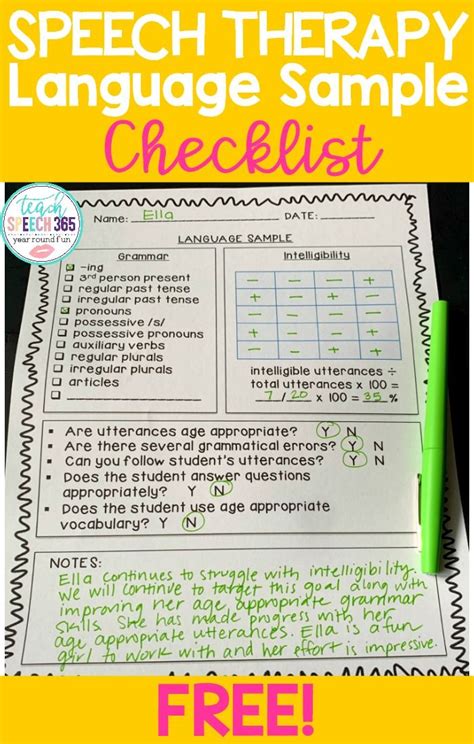 SPEECH THERAPY
Language Sample
Checklist
teach
SPEECH 365
year round fun
Name: Ella DATE:
LANGUAGE SAMPLE
Grammar
☒ -ing
☐ 3rd person present
☐ regular past tense
☐ irregular past tense
☒ pronouns
☐ possessive /s/
☐ possessive pronouns
☐ auxiliary verbs
☐ regular plurals
☐ irregular plurals
☐ articles
☐
Intelligibility
− − − −
+ − + −
− − − +
− + − −
− + + +
intelligible utterances ÷
total utterances x 100 =
7 / 20 x 100 = 35 %
▪ Are utterances age appropriate? Y N
▪ Are there several grammatical errors? Y N
▪ Can you follow student's utterances? Y N
▪ Does the student answer questions
appropriately? Y N
▪ Does the student use age appropriate
vocabulary? Y N
NOTES:
Ella continues to struggle with intelligibility.
We will continue to target this goal along with
improving her age appropriate grammar
skills. She has made progress with her
age appropriate utterances. Ella is a fun
girl to work with and her effort is impressive.
FREE!